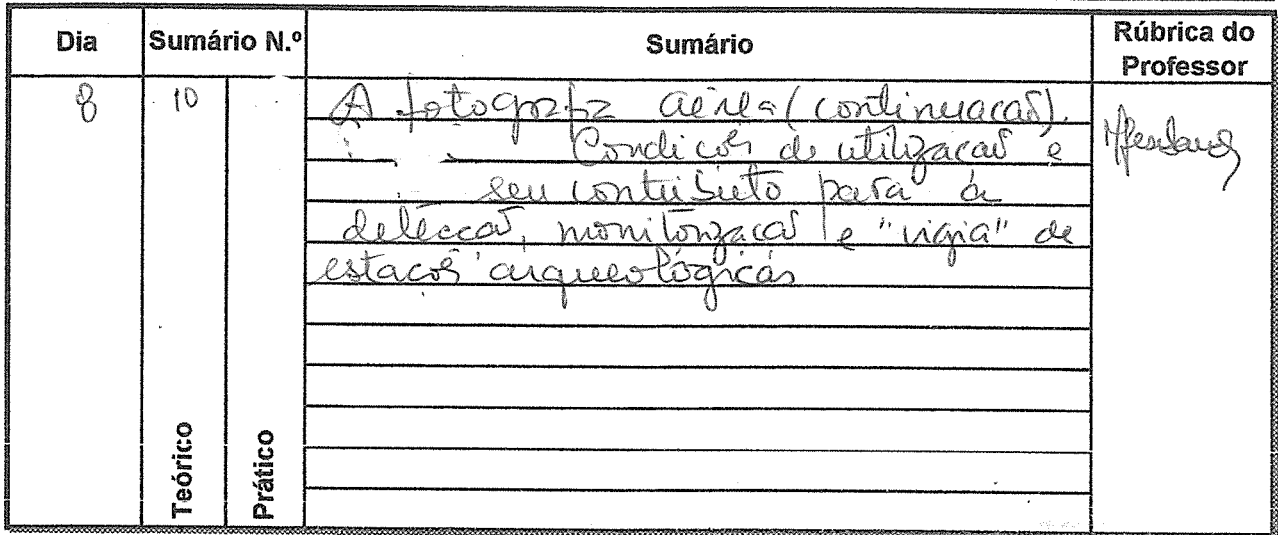 Dia Sumário N.º Sumário Rúbrica do Professor
8 10 A fotografia aérea (continuação).
Condições de utilização e
seu contributo para a
detecção, monitorização e "vigia" de
estações arqueológicas
Teórico Prático